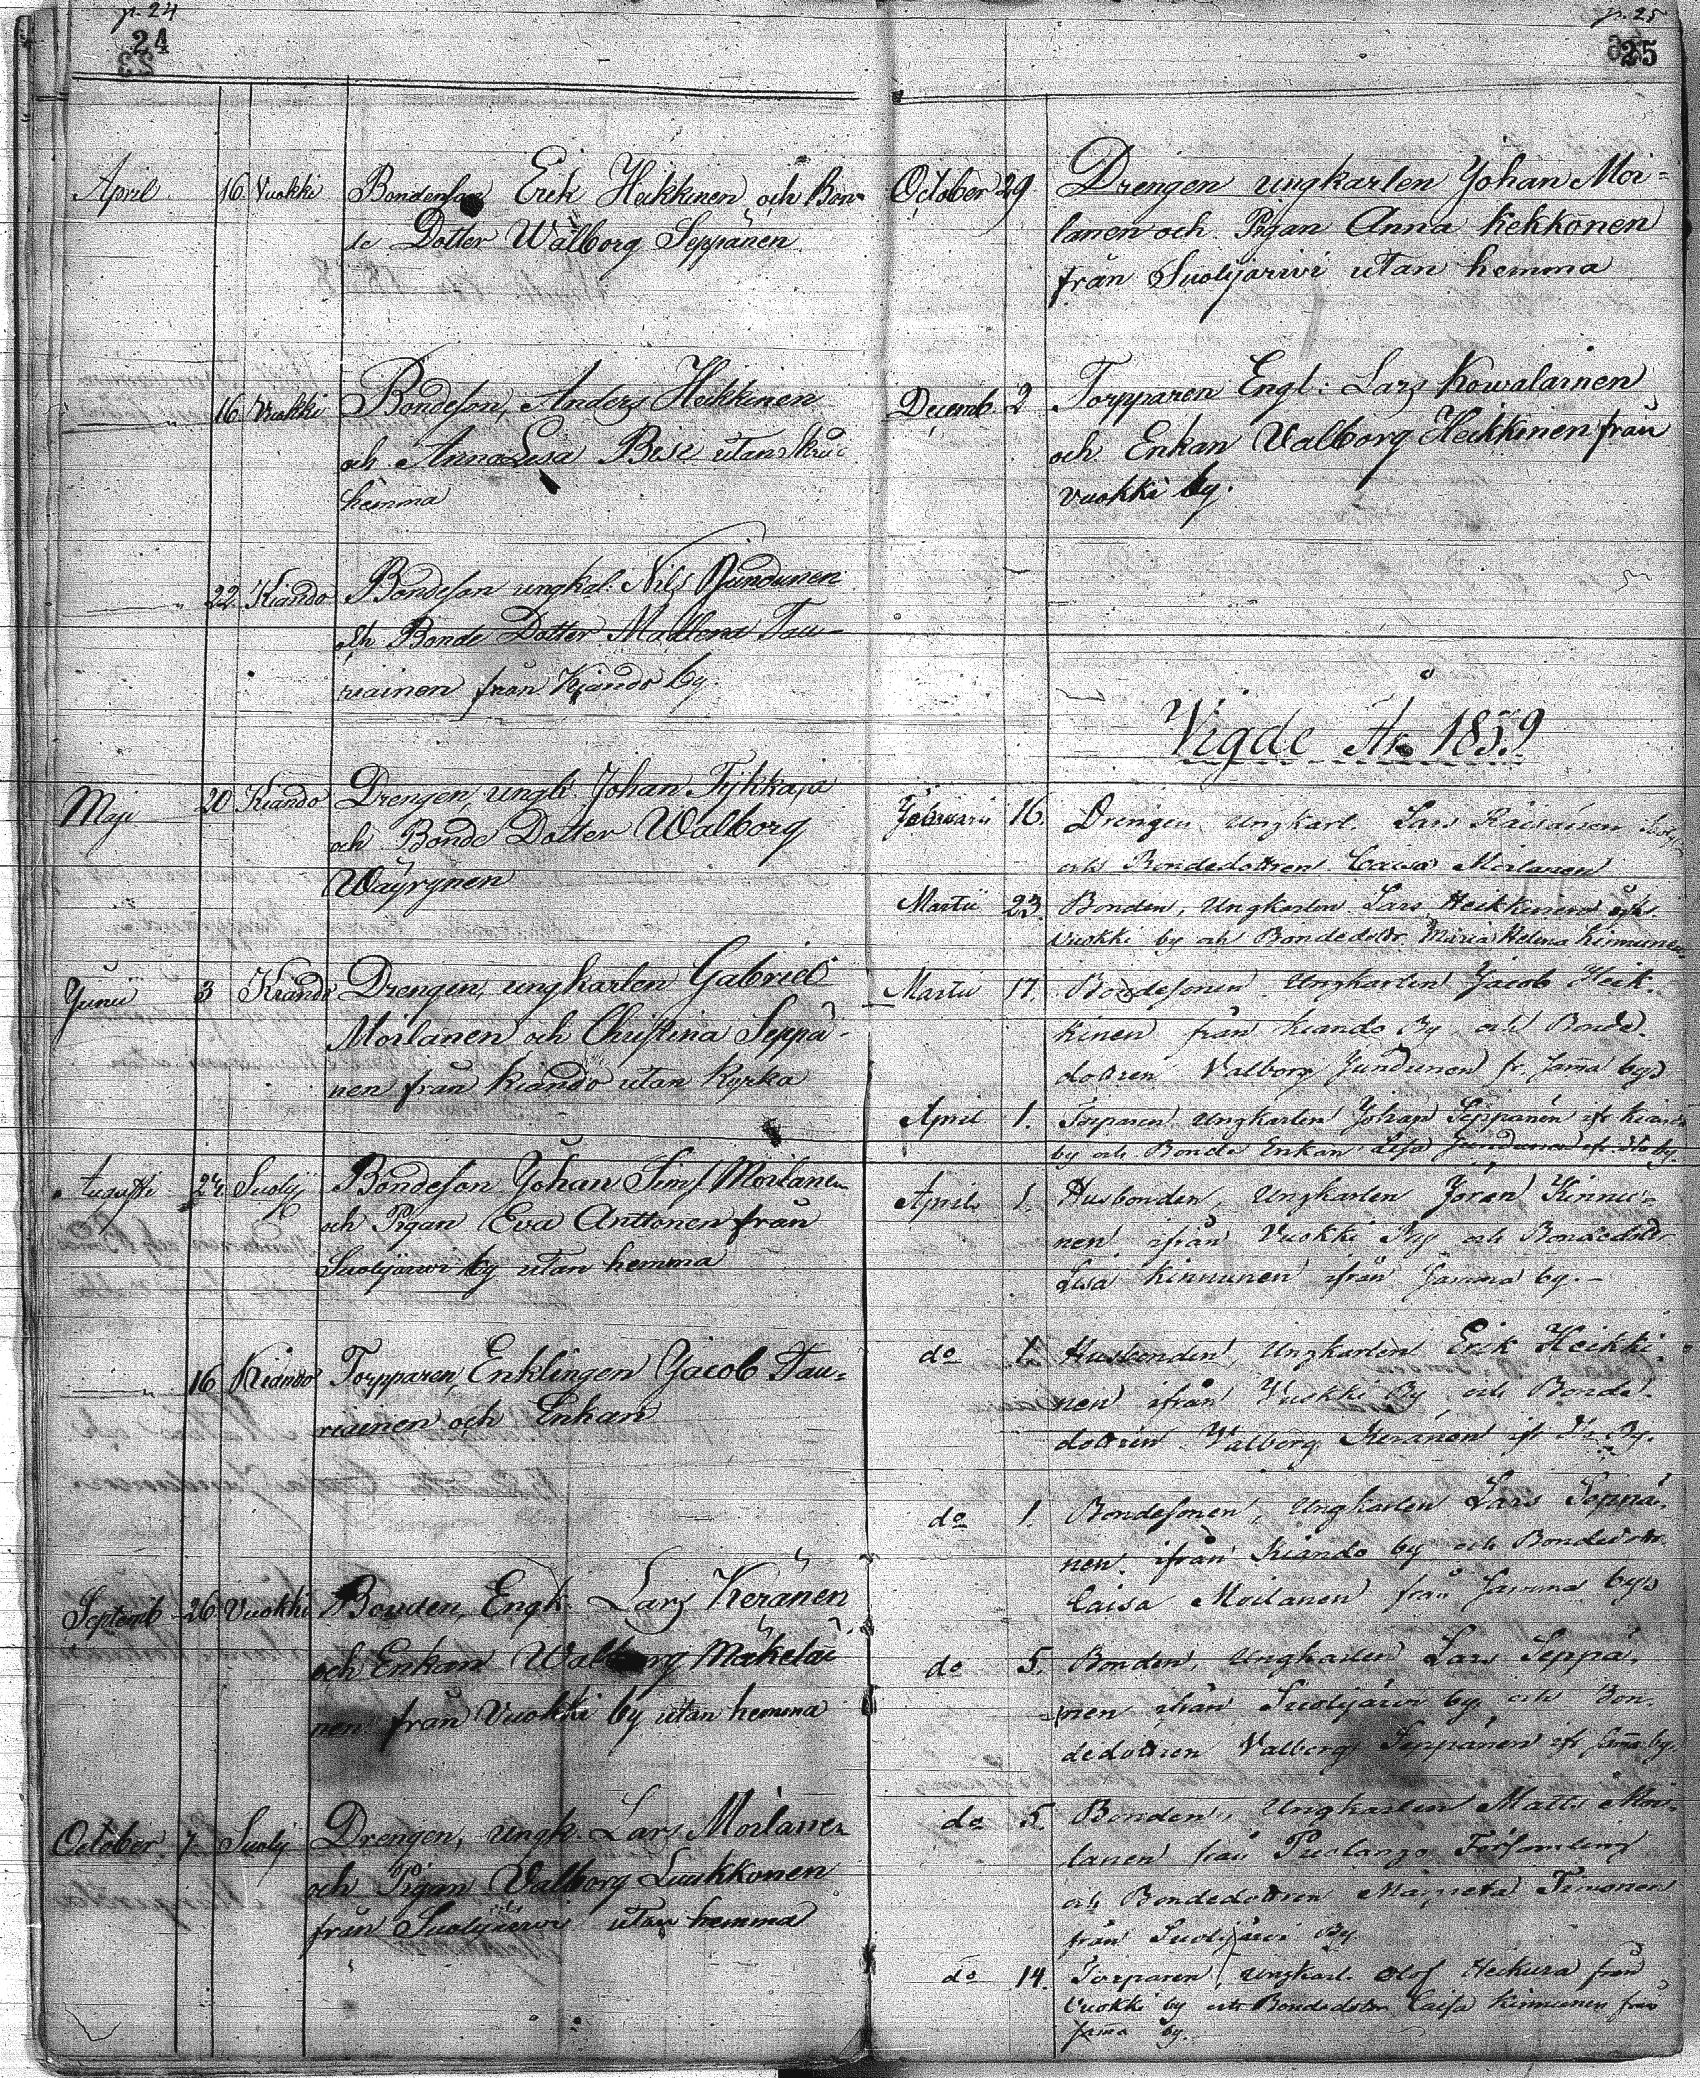 p. 24
24
April 16. Vuokki Bondeson Erik Heikkinen och Bon-
de Dotter Walborg Seppänen
16 Vuokki Bondeson, Anders Heikkinen
och Anna Lisa utan
hemma
22. Kiando Bondeson ungkal. Nils Jundunen
och Bonde Dotter Madlena Tau-
riainen från Kiando by.
Maji 20 Kiando Drengen, ungk Johan Tykkäjä
och Bonde Dotter Walborg
Wäyrynen
Junii 3 Kiando Drengen, ungkarlen Gabriel
Moilanen och Christina Seppä-
nen från Kiando utan Kyrka
Augusti 24. Suolij Bondeson Johan Moilanen
och Pigan Eva Anttonen från
Suolijärwi by utan hemma
16 Kiando Torpparen, Enklingen Jacob Tau-
riainen och Enkan
Septemb 26 Vuokki Bonden, Engk. Lars Keränen
och Enkan Walborg Mäkeläi-
nen från Vuokki by utan hemma
October 7 Suolij Drengen, ungk. Lars Moilanen
och Pigan Valborg Luukkonen
från Suolijärwi utan hemma
p. 25
25
October 29 Drengen ungkarlen Johan Moi-
lanen och Pigan Anna Kekkonen
från Suolijärwi utan hemma
Decemb. 2 Torpparen Engl: Lars Kowalainen
och Enkan Valborg Heikkinen från
Vuokki by.
Vigde År 1859
Februarii 16. Drengen Ungkarl. Lars Räisänen
och Bondedottren Caisa Moilanen
Martii 23. Bonden, Ungkarlen Lars Heikkinen
Vuokki by och Bondedottr Maria Helena Kinnunen
Martii 17. Bondesonen Ungkarlen Jacob Heik-
kinen från Kiando By och Bonde-
dottren Valborg Jundunen fr. sama by
April 1. Torparen Ungkarlen Johan Seppänen ifr Kiando
by och Bonde Enkan Lisa Jundunen
April 1. Husbonden, Ungkarlen Jöran Kinnu-
nen ifrån Vuokki By och Bondedottr
Lisa Kinnunen ifrån samma by. -
do 1. Husbonden, Ungkarlen Erik Heikki-
nen ifrån Vuokki By och Bonde-
dottren Valborg Keränen ifr By.
do 1. Bondesonen, Ungkarlen Lars Seppä-
nen ifrån Kiando by och Bondedottr
Caisa Moilanen från samma by
do 5. Bonden, Ungkarlen Lars Seppä-
nen ifrån Suolijärwi by och Bon-
dedottren Valborg Seppänen ifr sama by.
do 5. Bonden, Ungkarlen Matts Moi-
lanen från Puolango Församling
och Bondedottren Margreta Timonen
från Suolijärwi By
do 14. Torparen, Ungkarl. Olof Heikura från
Vuokki by och Bondedottr Caisa Kinnunen från
sama by.